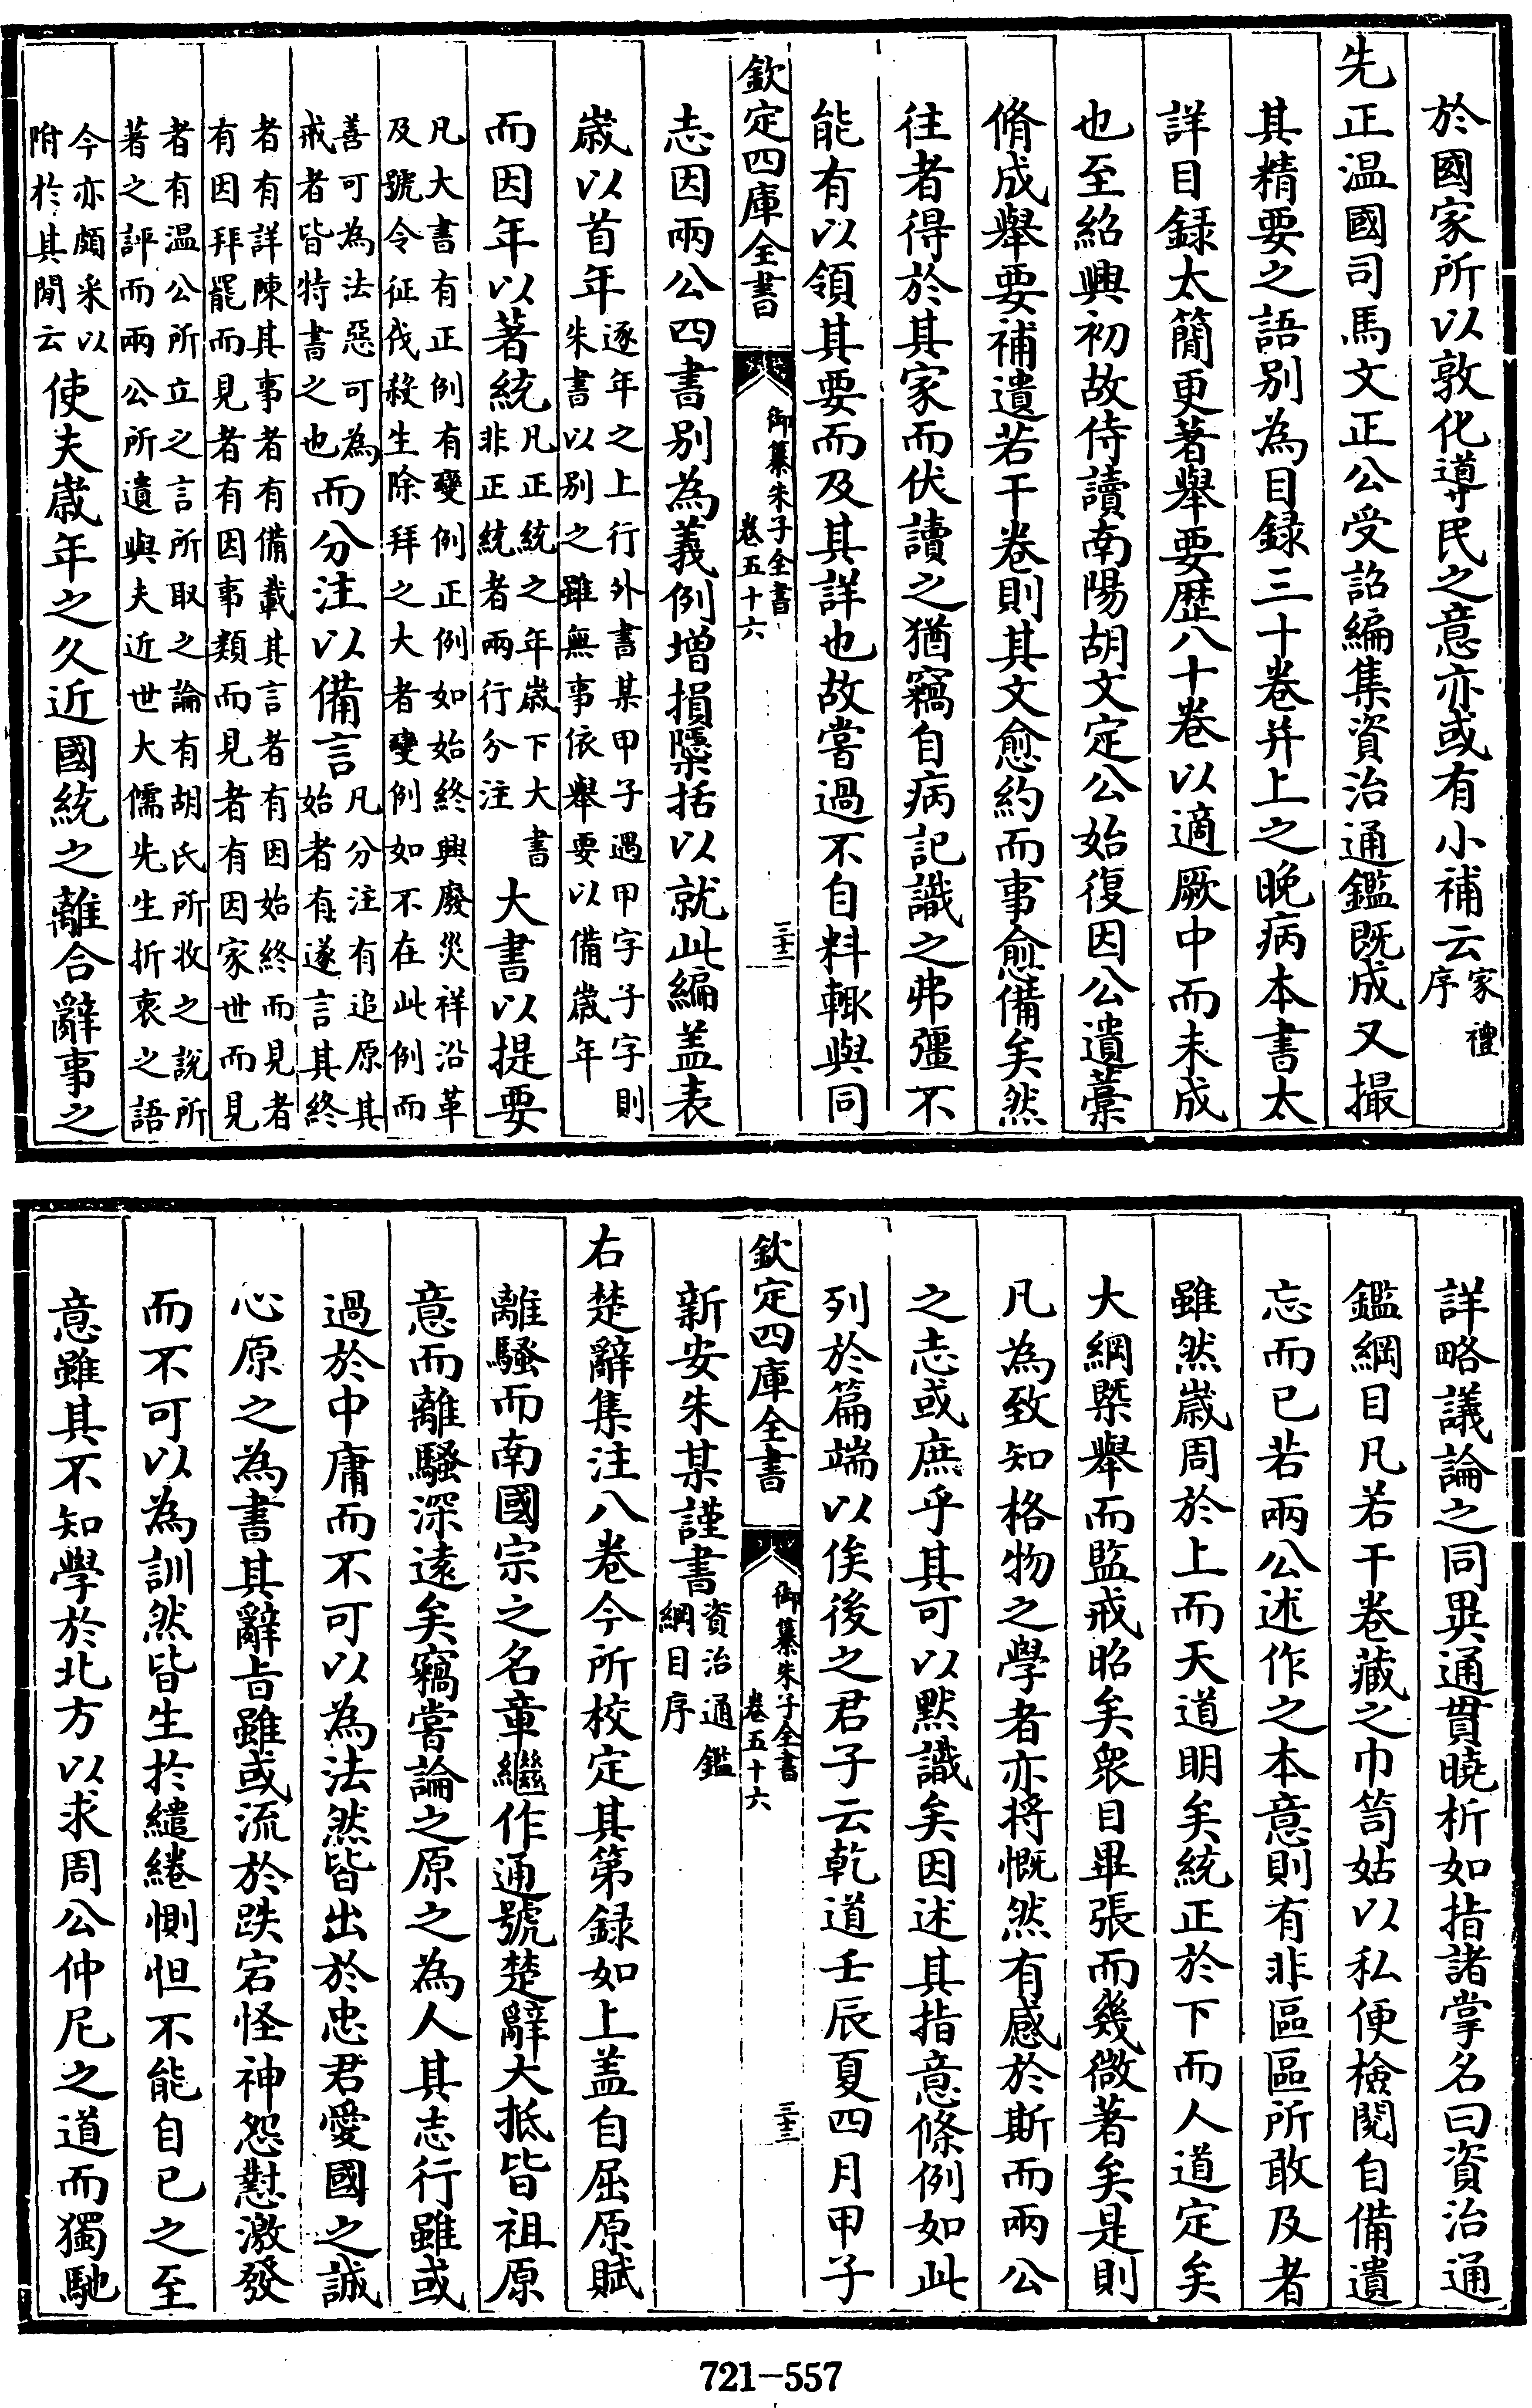 於國家所以敦化導民之意亦或有小補云家禮序
先正温國司馬文正公受詔編集資治通鑑既成又撮
其精要之語别為目録三十卷并上之晚病本書太
詳目録太簡更著舉要歴八十卷以適厥中而未成
也至紹興初故侍讀南陽胡文定公始復因公遺藁
脩成舉要補遺若干卷則其文愈約而事愈備矣然
往者得於其家而伏讀之猶竊自病記識之弗彊不
能有以領其要而及其詳也故嘗過不自料輙與同
欽定四庫全書
御纂朱子全書
卷五十六
三十二
志因兩公四書别為義例增損檃括以就此編盖表
歲以首年逐年之上行外書某甲子遇甲字子字則朱書以别之雖無事依舉要以備歲年
而因年以著統凡正統之年歲下大書非正統者兩行分注大書以提要
凡大書有正例有變例正例如始終興廢災祥沿革及號令征伐殺生除拜之大者變例如不在此例而
善可為法惡可為戒者皆特書之也而分注以備言凡分注有追原其始者有遂言其終
者有詳陳其事者有備載其言者有因始終而見者有因拜罷而見者有因事類而見者有因家世而見
者有温公所立之言所取之論有胡氏所收之說所著之評而兩公所遺與夫近世大儒先生折衷之語
今亦頗采以附於其閒云使夫歲年之久近國統之離合辭事之
詳略議論之同異通貫曉析如指諸掌名曰資治通
鑑綱目凡若干卷藏之巾笥姑以私便檢閱自備遺
忘而已若兩公述作之本意則有非區區所敢及者
雖然歲周於上而天道明矣統正於下而人道定矣
大綱槩舉而監戒昭矣衆目畢張而幾微著矣是則
凡為致知格物之學者亦將慨然有感於斯而兩公
之志或庶乎其可以默識矣因述其指意條例如此
列於篇端以俟後之君子云乾道壬辰夏四月甲子
欽定四庫全書
御纂朱子全書
卷五十六
三十三
新安朱某謹書資治通鑑綱目序
右楚辭集注八卷今所校定其第録如上盖自屈原賦
離騷而南國宗之名章繼作通號楚辭大抵皆祖原
意而離騷深遠矣竊嘗論之原之為人其志行雖或
過於中庸而不可以為法然皆出於忠君愛國之誠
心原之為書其辭㫖雖或流於跌宕怪神怨懟激發
而不可以為訓然皆生於繾綣惻怛不能自已之至
意雖其不知學於北方以求周公仲尼之道而獨馳
721-557